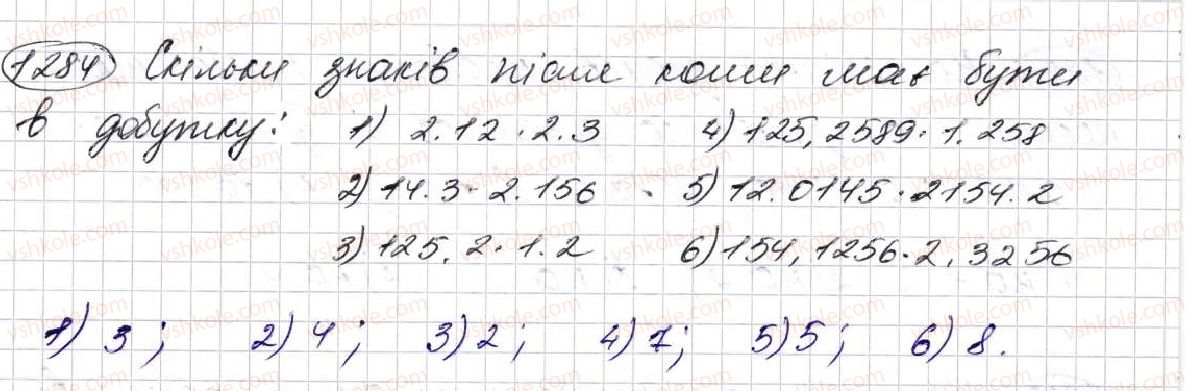 1284 Скільки знаків після коми має бути
в добутку: 1) 2.12 · 2.3 4) 125,2589 · 1.258
2) 14.3 · 2.156 5) 12.0145 · 2154.2
3) 125,2 · 1.2 6) 154,1256 · 2,3256
1) 3; 2) 4; 3) 2; 4) 7; 5) 5; 6) 8.